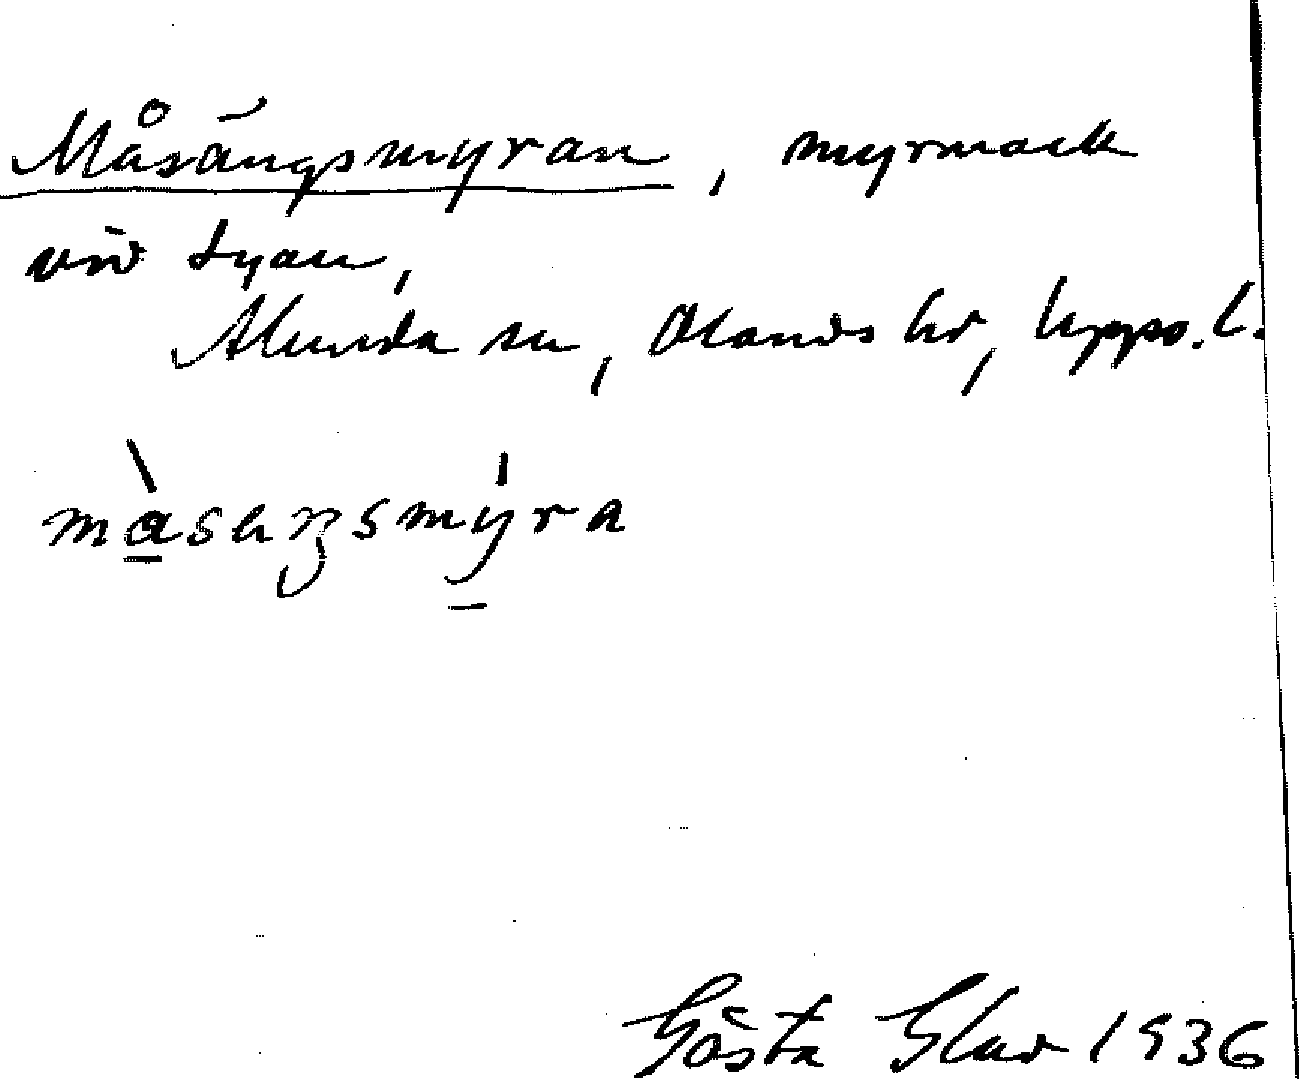 Måsängsmyran, myrmark
vid Lyan,
Alunda sn, Olands hd, Upps. l.
màsaŋsmýra
Gösta Glad 1936